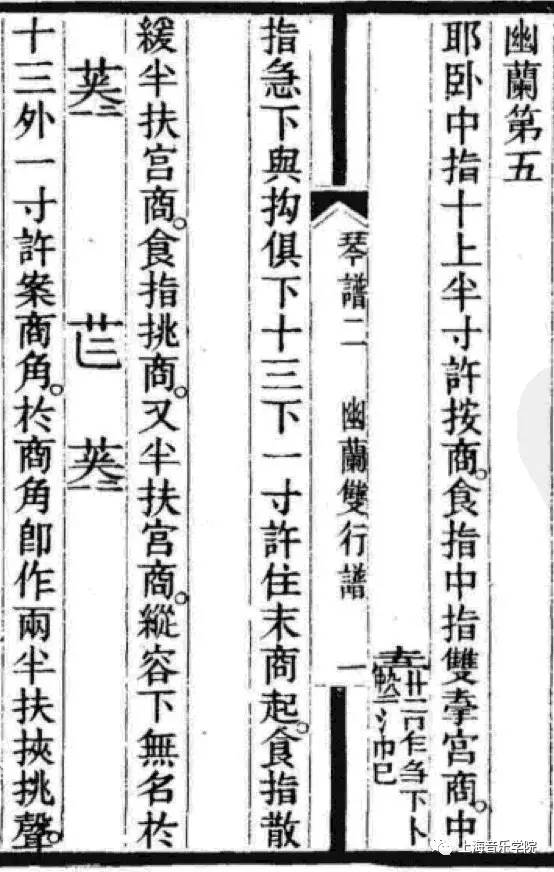 幽蘭第五
耶卧中指十上半寸許按商。食指中指雙牽宮商。中
琴譜二 幽蘭雙行譜 一
指急下與拘俱下十三下一寸許住末商起。食指散
緩半扶宮商。食指挑商。又半扶宮商。縱容下無名於
十三外一寸許案商角。於商角卽作兩半扶挾挑聲。
上海音乐学院